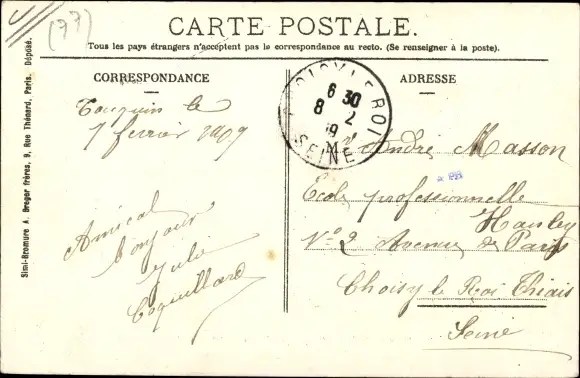 (77)
CARTE POSTALE.
Tous les pays étrangers n'acceptent pas la correspondance au recto. (Se renseigner à la poste).
CORRESPONDANCE
ADRESSE
Simi-Bromure A. Breger frères, 9, Rue Thénard, Paris. Déposé.
Touquin le
7 fevrier 1909
Amical
bonjour
Jules
Coquillard
CHOISY LE ROI
6 30
8 2
09
SEINE
André Masson
Ecole professionnelle
Hanley
N° 2 Avenue de Paris
Choisy le Roi Thiais
Seine